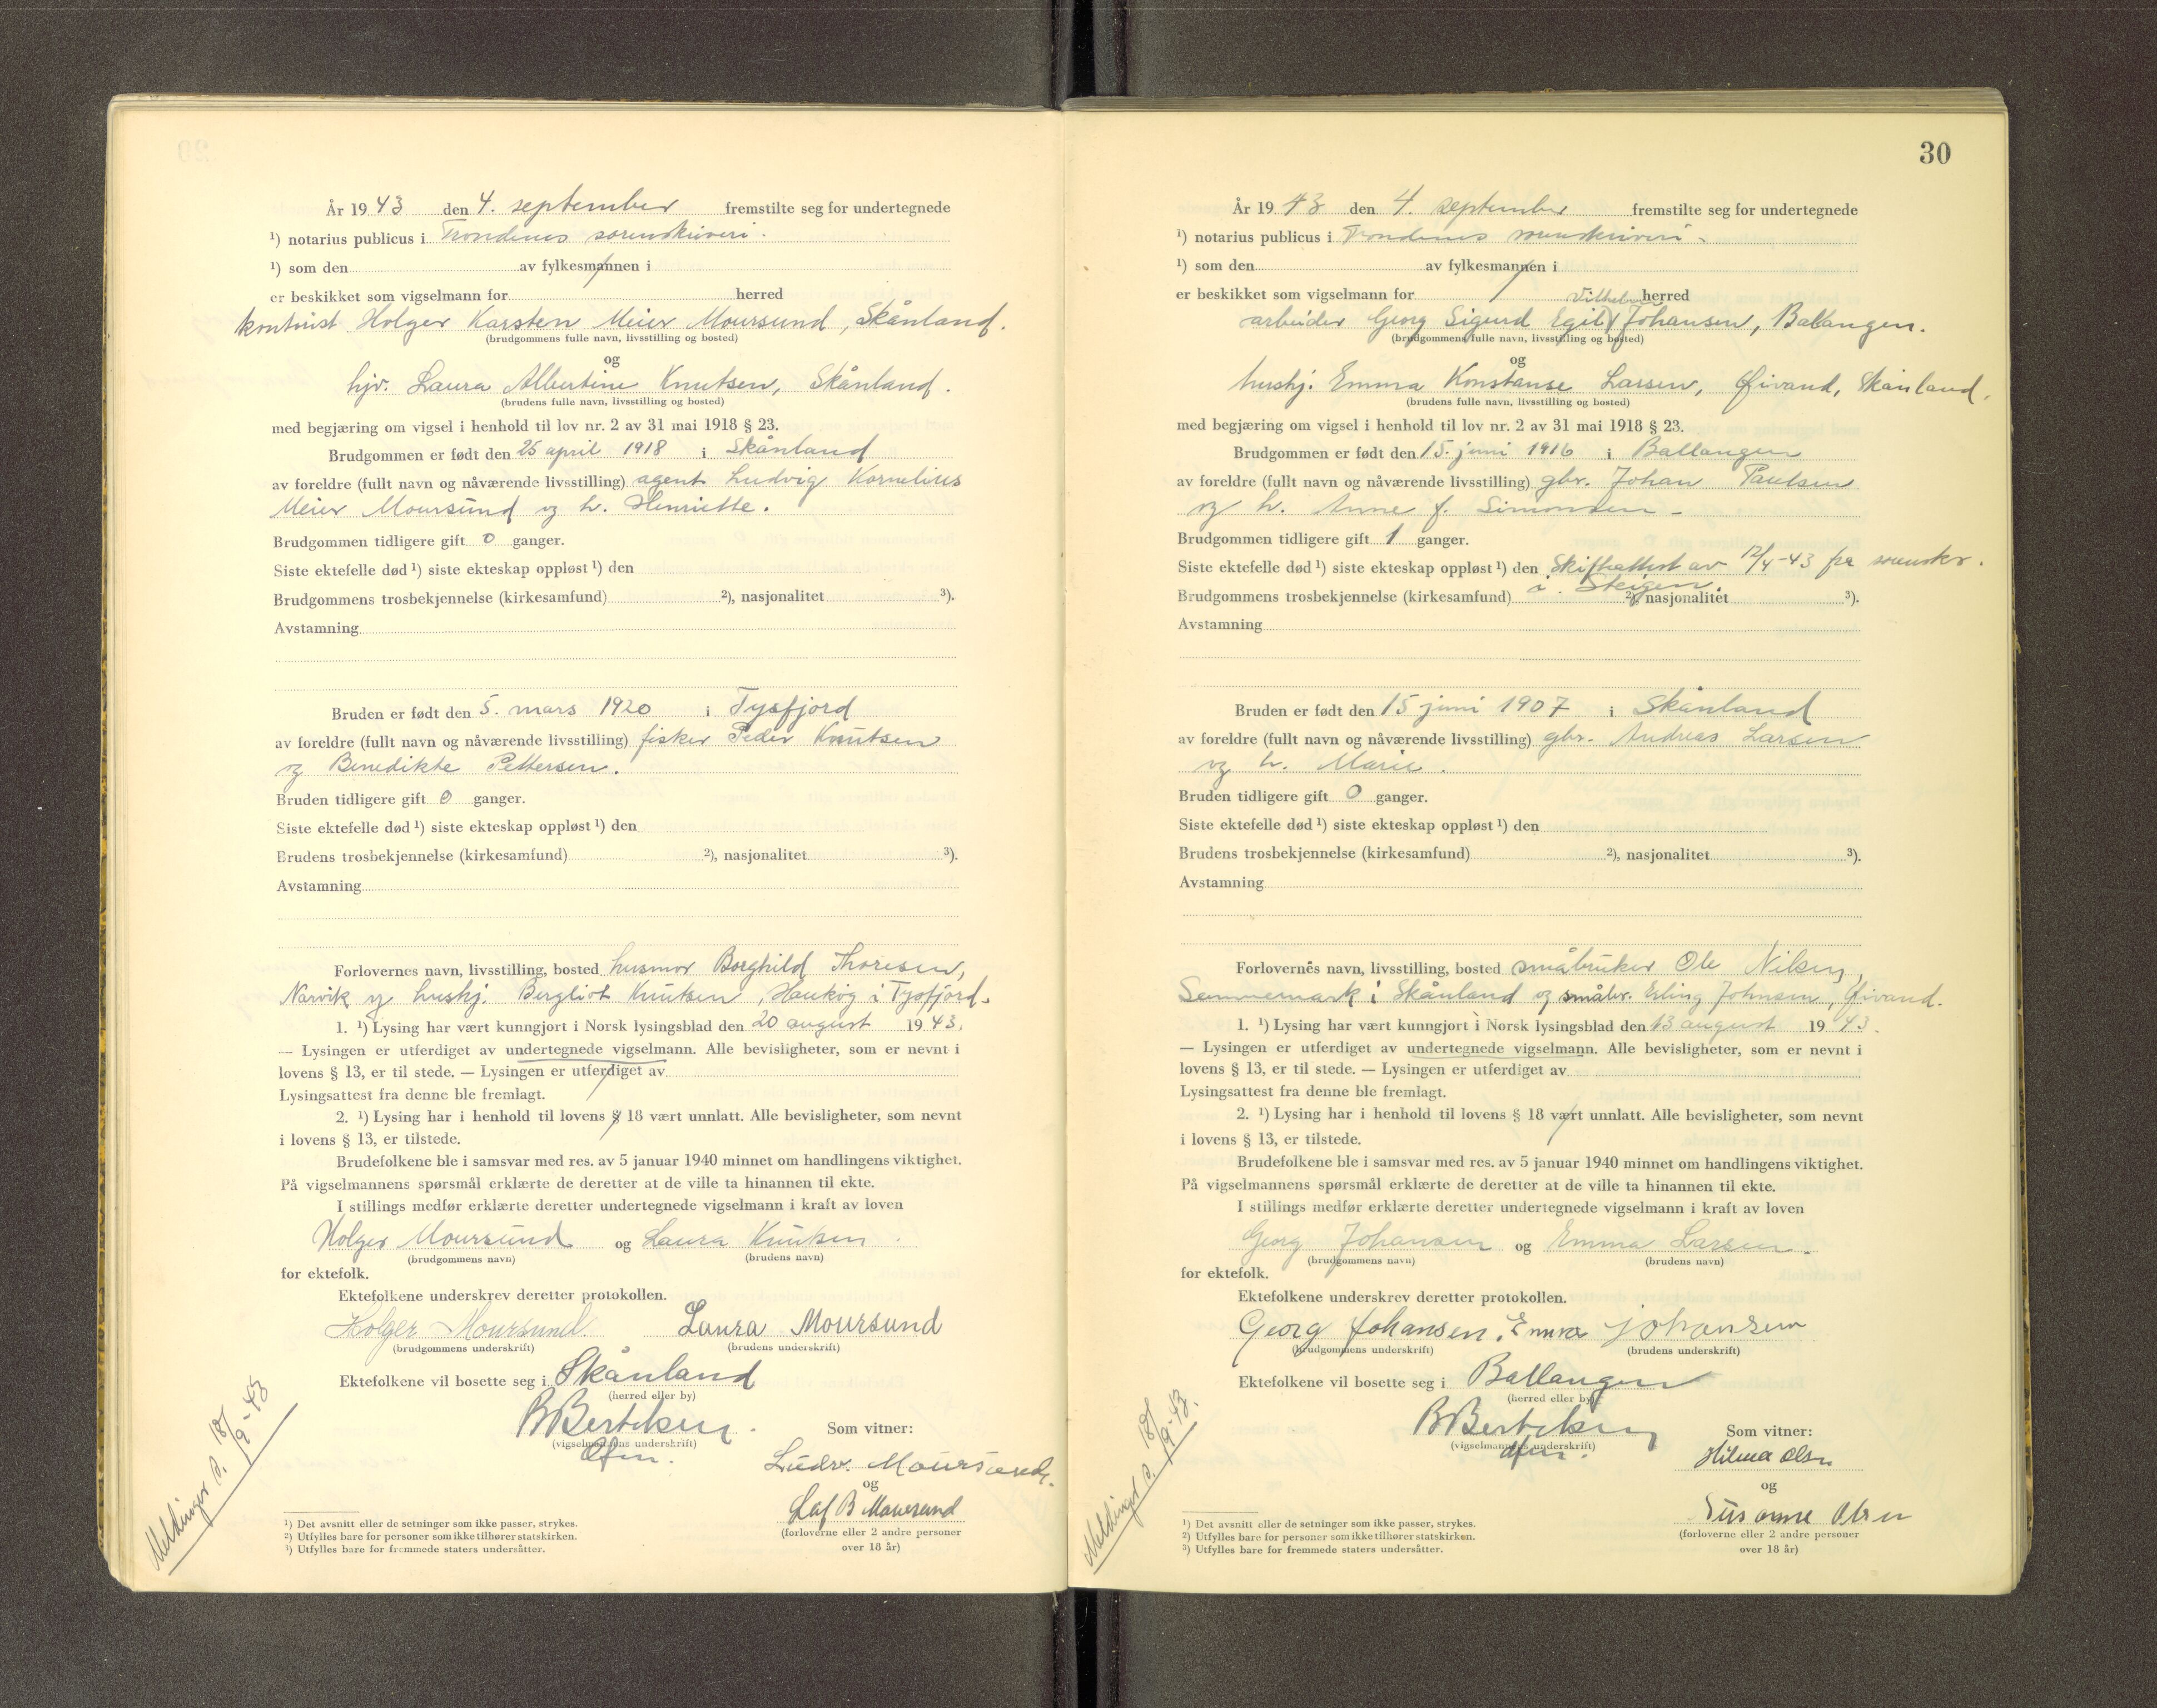 År 1943 den 4. september fremstilte seg for undertegnede
¹) notarius publicus i Trondenes sorenskriveri.
¹) som den av fylkesmannen i
er beskikket som vigselmann for herred
kontorist Holger Karsten Meier Moursund, Skånland.
(brudgommens fulle navn, livsstilling og bosted)
og
hjv. Laura Albertine Knutsen, Skånland.
(brudens fulle navn, livsstilling og bosted)
med begjæring om vigsel i henhold til lov nr. 2 av 31 mai 1918 § 23.
Brudgommen er født den 25 april 1918 i Skånland
av foreldre (fullt navn og nåværende livsstilling) agent Ludvig Kornelius
Meier Moursund og h. Henriette.
Brudgommen tidligere gift 0 ganger.
Siste ektefelle død ¹) siste ekteskap oppløst ¹) den
Brudgommens trosbekjennelse (kirkesamfund) ²), nasjonalitet ³).
Avstamning
Bruden er født den 5. mars 1920 i Tysfjord
av foreldre (fullt navn og nåværende livsstilling) fisker Peder Knutsen
og Benedikte Pettersen.
Bruden tidligere gift 0 ganger.
Siste ektefelle død ¹) siste ekteskap oppløst ¹) den
Brudens trosbekjennelse (kirkesamfund) ²), nasjonalitet ³).
Avstamning
Forlovernes navn, livsstilling, bosted husmor Borghild Thoresen,
Narvik og hushj. Bergliot Knutsen, Haukøy i Tysfjord.
1. ¹) Lysing har vært kunngjort i Norsk lysingsblad den 20 august 1943.
— Lysingen er utferdiget av undertegnede vigselmann. Alle bevisligheter, som er nevnt i
lovens § 13, er til stede. — Lysingen er utferdiget av
Lysingsattest fra denne ble fremlagt.
2. ¹) Lysing har i henhold til lovens § 18 vært unnlatt. Alle bevisligheter, som nevnt
i lovens § 13, er tilstede.
Brudefolkene ble i samsvar med res. av 5 januar 1940 minnet om handlingens viktighet.
På vigselmannens spørsmål erklærte de deretter at de ville ta hinannen til ekte.
I stillings medfør erklærte deretter undertegnede vigselmann i kraft av loven
Holger Moursund og Laura Knutsen
(brudgommens navn) (brudens navn)
for ektefolk.
Ektefolkene underskrev deretter protokollen.
Holger Moursund. Laura Moursund
(brudgommens underskrift) (brudens underskrift)
Ektefolkene vil bosette seg i Skånland
(herred eller by)
B Bertelsen. Som vitner:
(vigselmannens underskrift)
Ludv. Moursund.
og
Leif B Moursund
(forloverne eller 2 andre personer
over 18 år)
Meldinger s. 18/9-43
¹) Det avsnitt eller de setninger som ikke passer, strykes.
²) Utfylles bare for personer som ikke tilhører statskirken.
³) Utfylles bare for fremmede staters undersåtter.
30
År 1943 den 4. september fremstilte seg for undertegnede
¹) notarius publicus i Trondenes sorenskriveri.
¹) som den av fylkesmannen i
er beskikket som vigselmann for herred
Vilhelm
arbeider Georg Sigurd Egil Johansen, Ballangen.
(brudgommens fulle navn, livsstilling og bosted)
og
hushj. Emma Konstanse Larsen, Skånland.
(brudens fulle navn, livsstilling og bosted)
med begjæring om vigsel i henhold til lov nr. 2 av 31 mai 1918 § 23.
Brudgommen er født den 15. juni 1916 i Ballangen
av foreldre (fullt navn og nåværende livsstilling) gbr. Johan Paulsen
og h. Anne f. Simonsen.
Brudgommen tidligere gift 1 ganger.
Siste ektefelle død ¹) siste ekteskap oppløst ¹) den Skifteattest av 12/4-43 fra sorenskr.
i Steigen.
Brudgommens trosbekjennelse (kirkesamfund) ²), nasjonalitet ³).
Avstamning
Bruden er født den 15 juni 1907 i Skånland
av foreldre (fullt navn og nåværende livsstilling) gbr. Andreas Larsen
og h. Marie.
Bruden tidligere gift 0 ganger.
Siste ektefelle død ¹) siste ekteskap oppløst ¹) den
Brudens trosbekjennelse (kirkesamfund) ²), nasjonalitet ³).
Avstamning
Forlovernes navn, livsstilling, bosted småbruker Ole Nilsen,
Sommemark i Skånland og småbr. Erling Johnsen,
1. ¹) Lysing har vært kunngjort i Norsk lysingsblad den 13 august 1943.
— Lysingen er utferdiget av undertegnede vigselmann. Alle bevisligheter, som er nevnt i
lovens § 13, er til stede. — Lysingen er utferdiget av
Lysingsattest fra denne ble fremlagt.
2. ¹) Lysing har i henhold til lovens § 18 vært unnlatt. Alle bevisligheter, som nevnt
i lovens § 13, er tilstede.
Brudefolkene ble i samsvar med res. av 5 januar 1940 minnet om handlingens viktighet.
På vigselmannens spørsmål erklærte de deretter at de ville ta hinannen til ekte.
I stillings medfør erklærte deretter undertegnede vigselmann i kraft av loven
Georg Johansen og Emma Larsen.
(brudgommens navn) (brudens navn)
for ektefolk.
Ektefolkene underskrev deretter protokollen.
Georg Johansen. Emma Johansen
(brudgommens underskrift) (brudens underskrift)
Ektefolkene vil bosette seg i Ballangen
(herred eller by)
B Bertelsen Som vitner:
(vigselmannens underskrift)
Hilma Olsen
og
Susanne Olsen
(forloverne eller 2 andre personer
over 18 år)
Meldinger s. 18/9-43.
¹) Det avsnitt eller de setninger som ikke passer, strykes.
²) Utfylles bare for personer som ikke tilhører statskirken.
³) Utfylles bare for fremmede staters undersåtter.